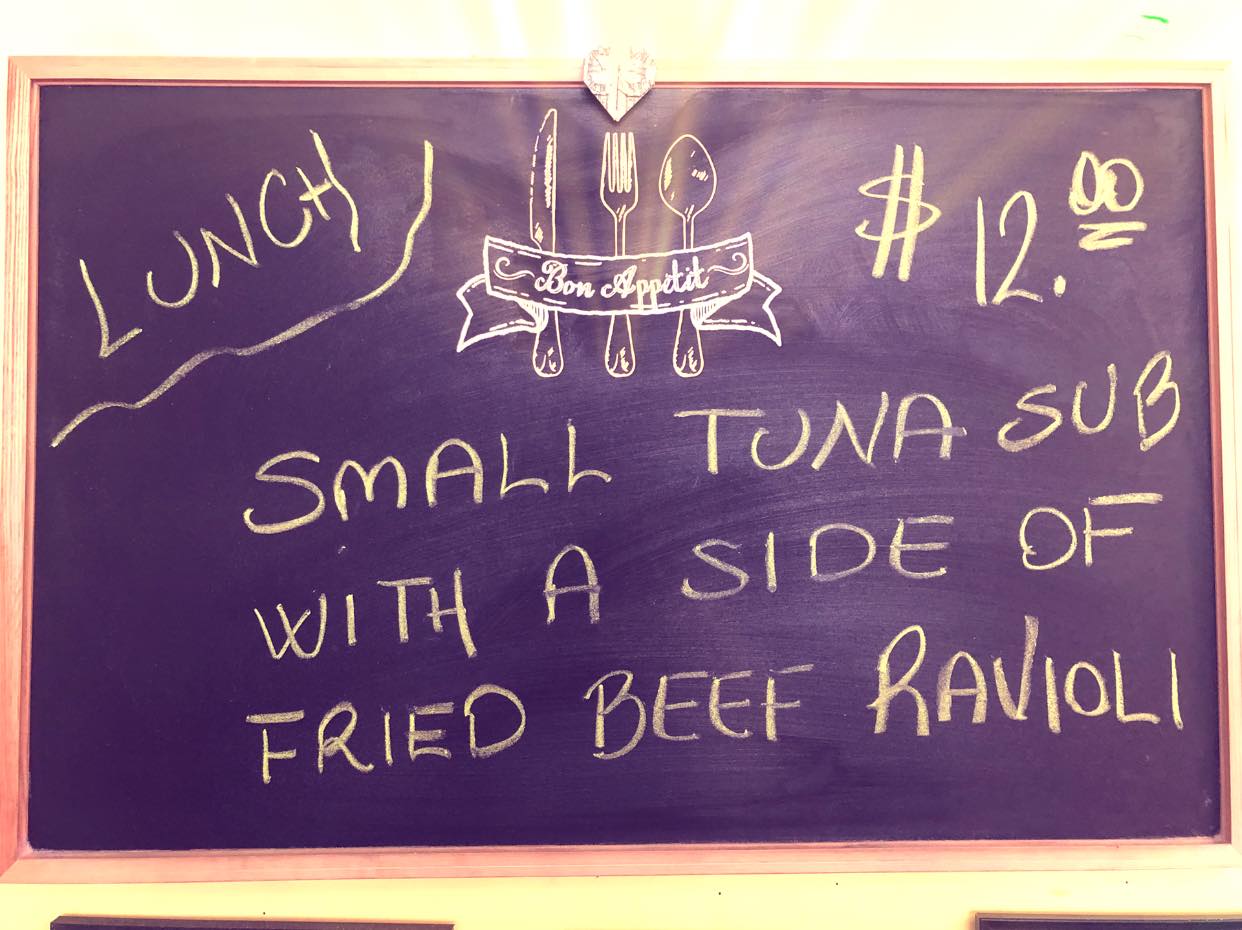 LUNCH
Bon Appétit
$ 12.00
SMALL TUNA SUB
WITH A SIDE OF
FRIED BEEF RAVIOLI